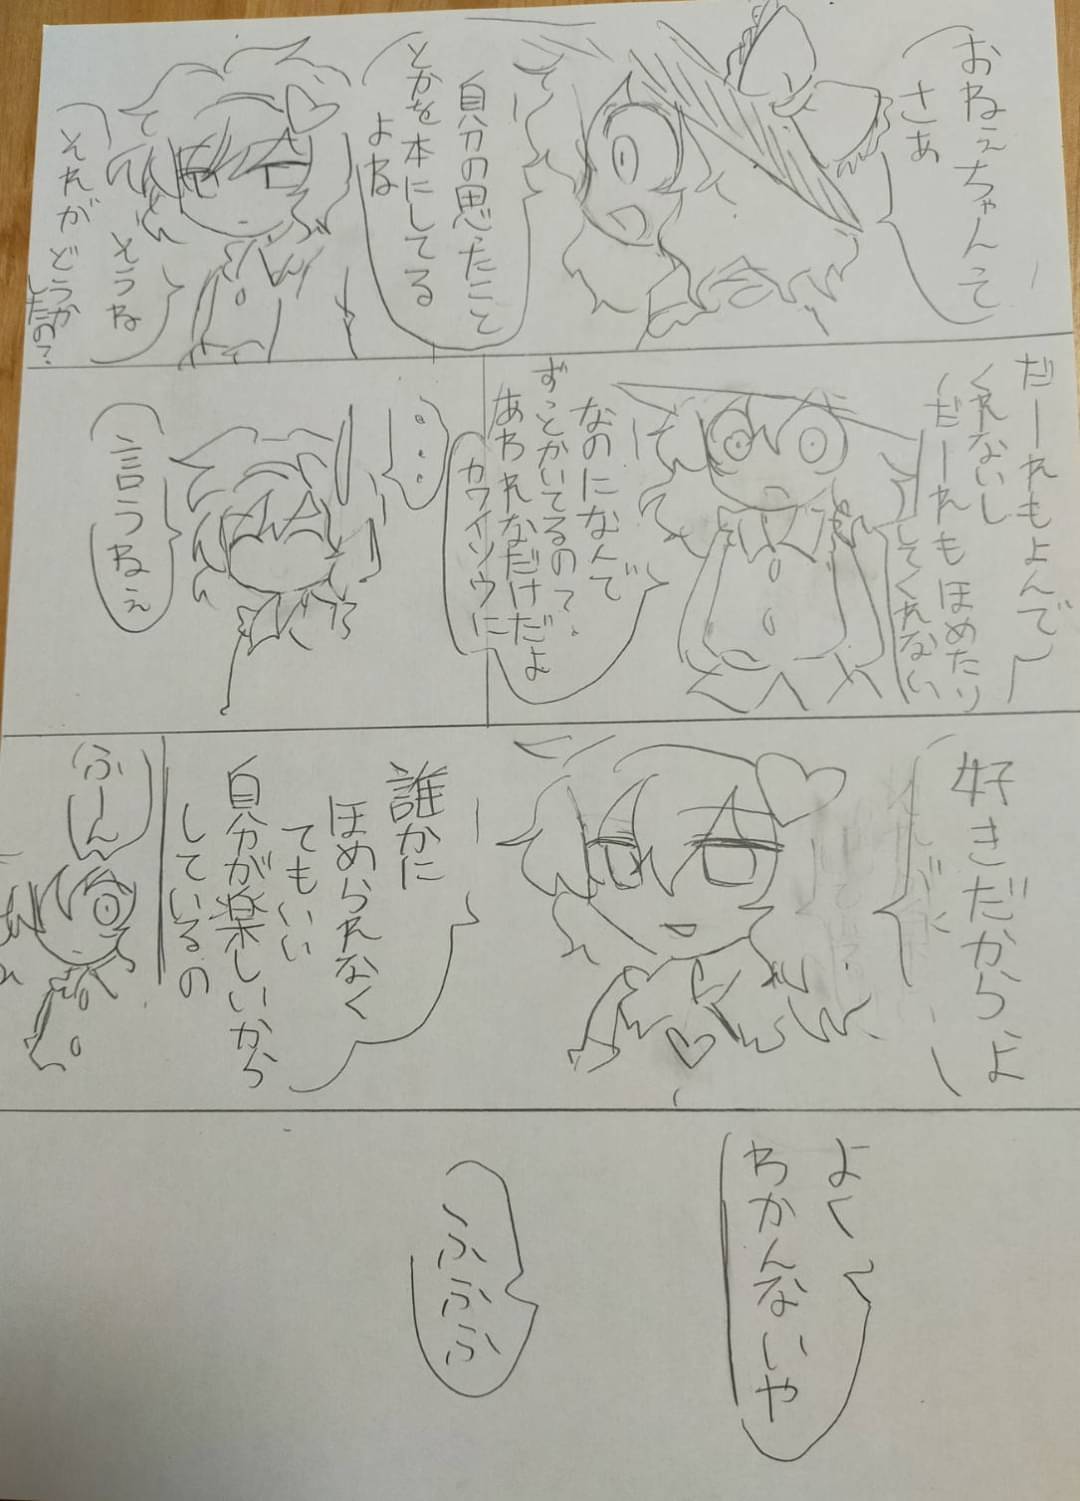 おねぇちゃんて
さあ
自分の思ったこと
とかを本にしてる
よね
そうね
それがどうか
したの?
だーれもよんで
くれないし
だーれもほめたり
してくれない
なのになんで
ずっとかいてるの?
あわれなだけだよ
カワイソウに
・・・
言うねぇ
好きだから、よ
誰かに
ほめられなく
てもいい
自分が楽しいから
しているの
ふーん
よく
わかんないや
ふふふ